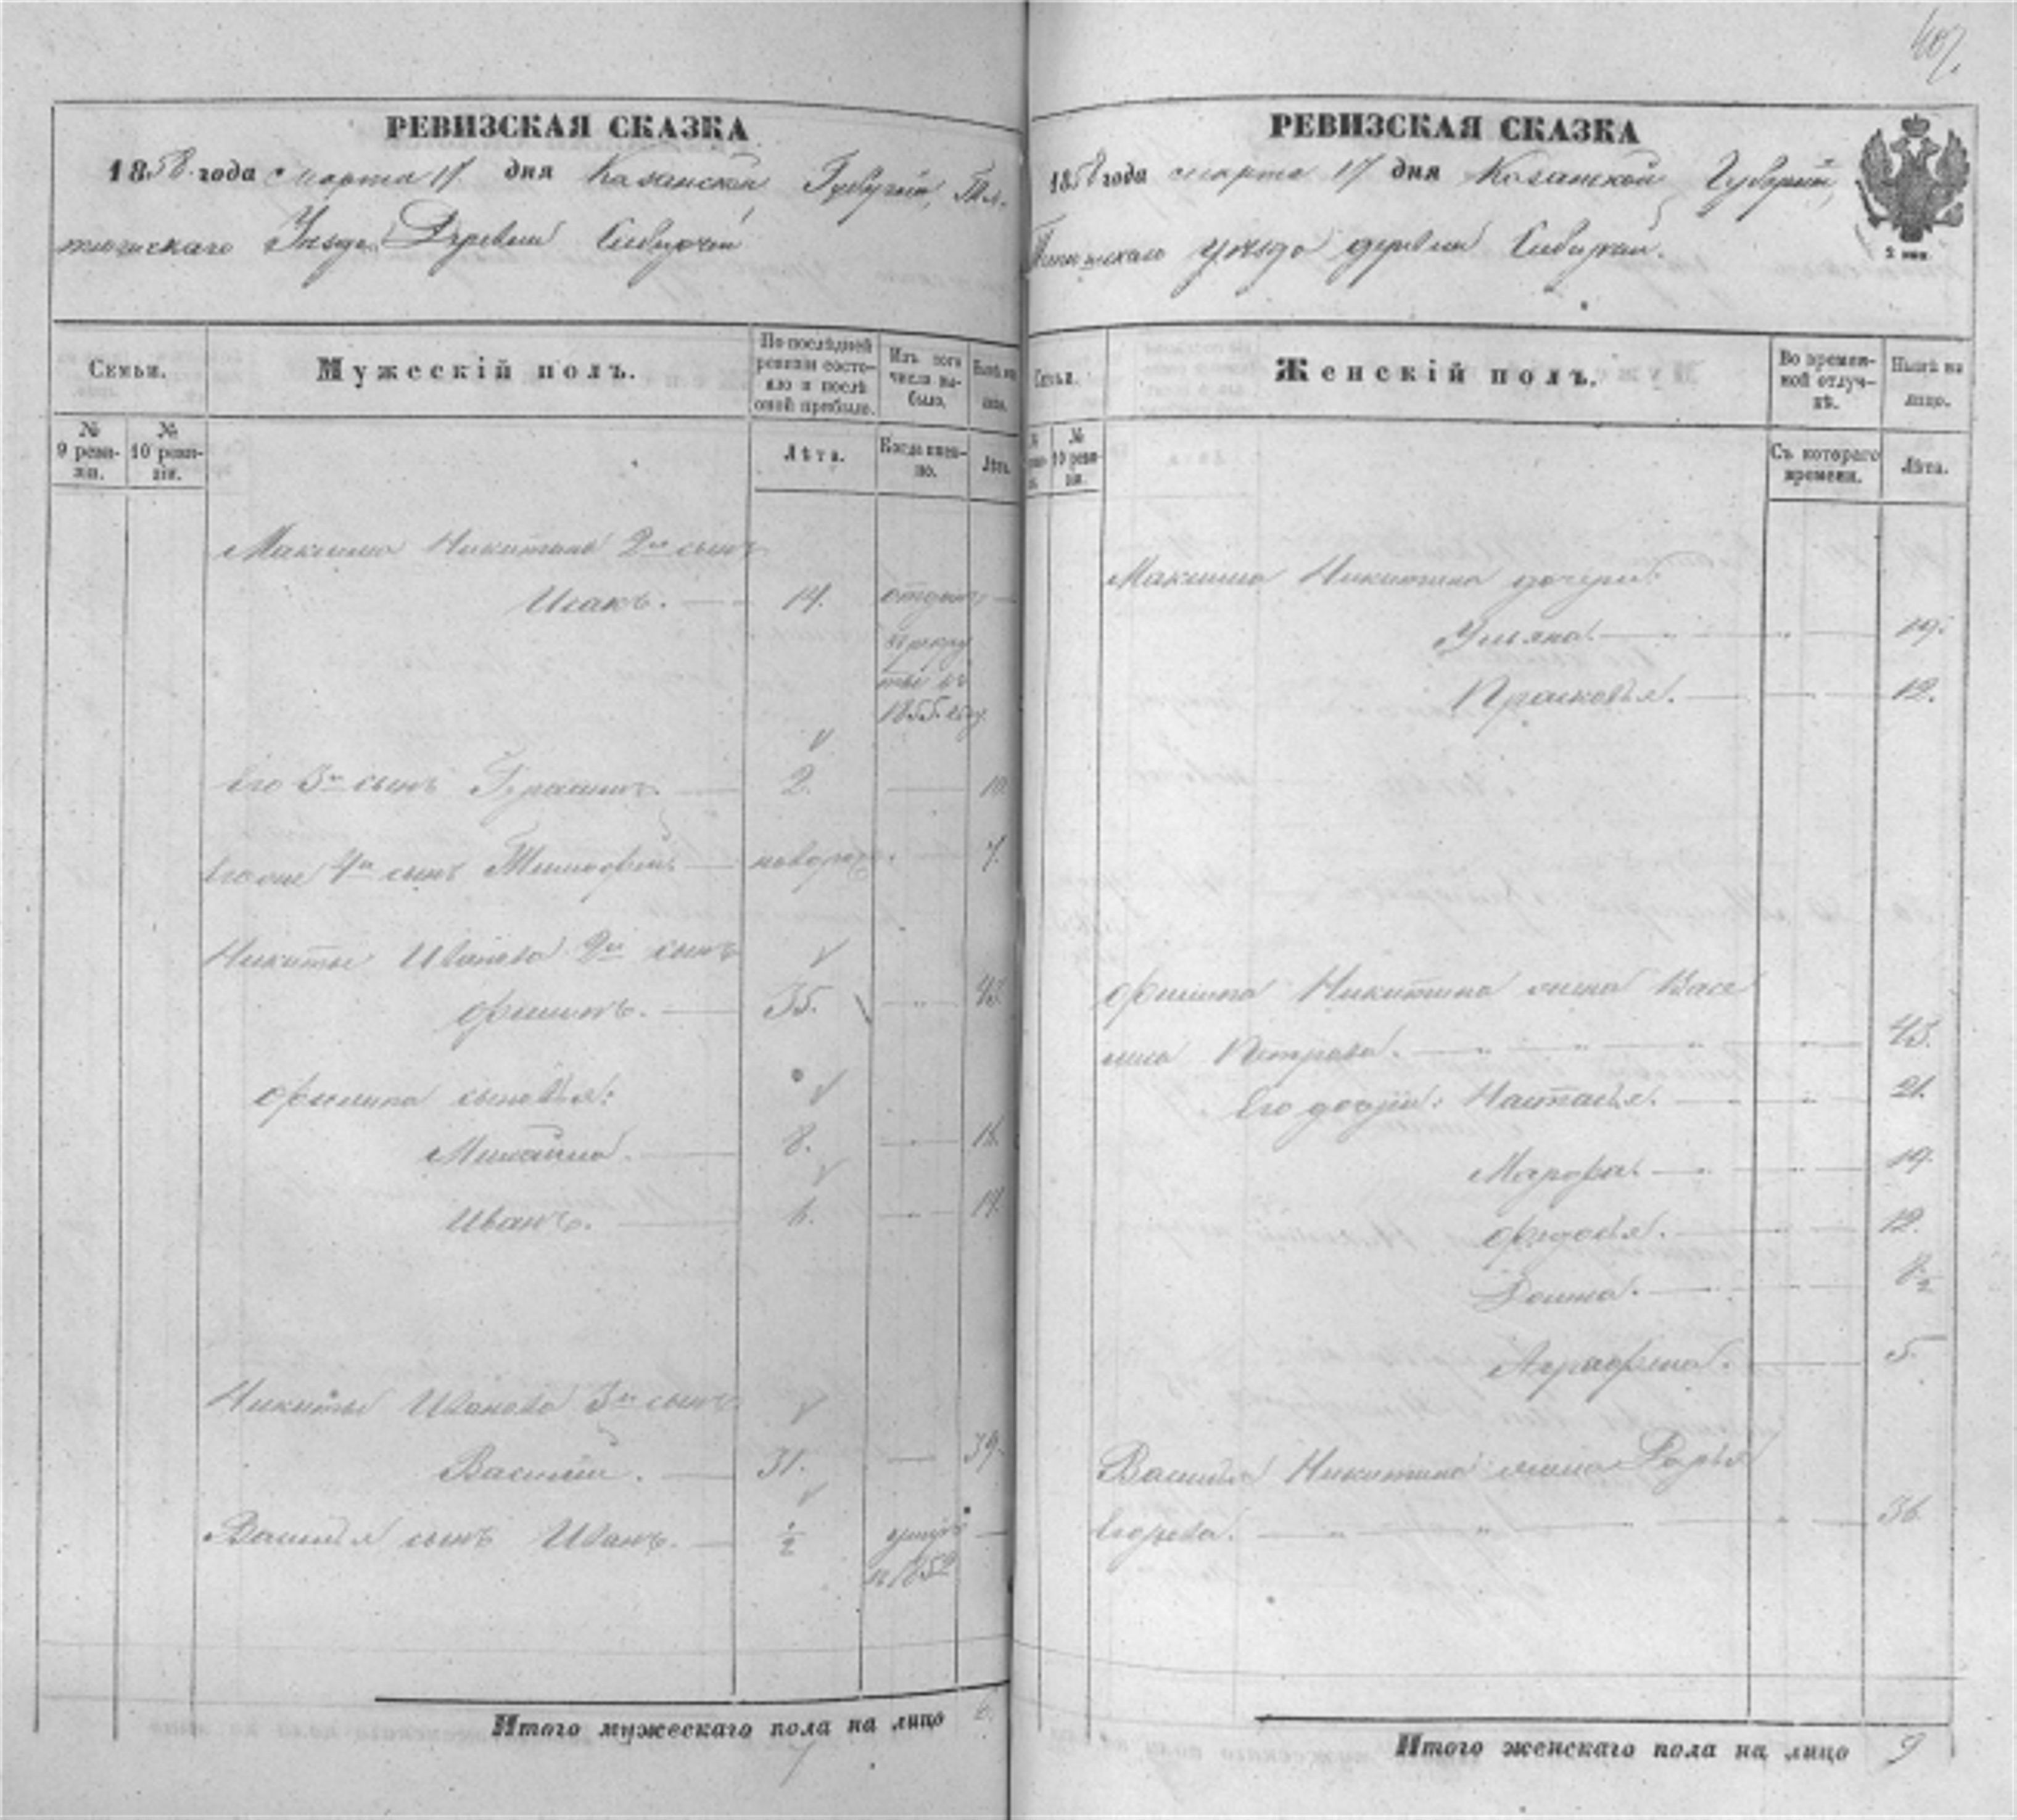 407.
РЕВИЗСКАЯ СКАЗКА
1858 года Марта 17 дня Казанской Губернии, Тѣ-
тюшскаго Уѣзда Деревни
Семьи.
Мужескій полъ.
По послѣдней ревизіи состояло и послѣ оной прибыло.
Изъ того числа выбыло.
Нынѣ на лицо.
№ 9 ревизіи.
№ 10 ревизіи.
Лѣта.
Когда именно.
Лѣта.
Максима Никитина 2й сынъ
Исакъ. 14. отданъ
въ рекру
ты въ
1855 году
Его 3й сынъ Герасимъ. 2. 10.
Его же 4й сынъ Тимофей. новорож. 7.
Никиты Иванова 2й сынъ
Филипъ. 35. 43.
Филипа сыновья:
Михайла. 8. 16.
Иванъ. 6. 14.
Никиты Иванова 3й сынъ
Василий. 31. 39.
Василья сынъ Иванъ. ½ умеръ
въ 1852
Итого мужескаго пола на лицо 6.
7
РЕВИЗСКАЯ СКАЗКА
1858 года Марта 17 дня Казанской Губернии,
Тетюшскаго уѣзда деревни
2 коп.
Семьи.
Женскій полъ.
Во временной отлучкѣ.
Нынѣ на лицо.
№ 10 ревизіи.
Съ котораго времени.
Лѣта.
Максима Никитина дочери:
Ульяна. 19.
Прасковья. 12.
Филипа Никитина жена Васе
лиса Петрова. 43.
Его дочери: Настасья. 21.
Марфа. 19.
Федосья. 12.
Домна. 8½
Аграфена. 5.
Василья Никитина жена Дарья
Егорева. 36.
Итого женскаго пола на лицо 9